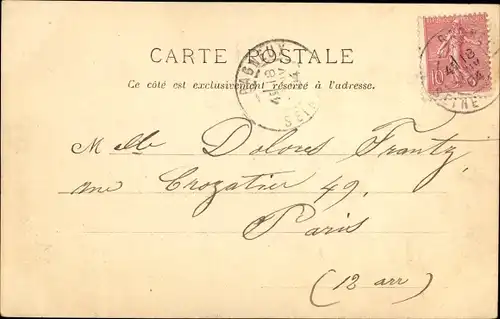 CARTE POSTALE
Ce côté est exclusivement réservé à l'adresse.
BAGNEUX
SEINE
10
Melle Dolores Frantz
rue Crozatier 49.
Paris
(12 arr)